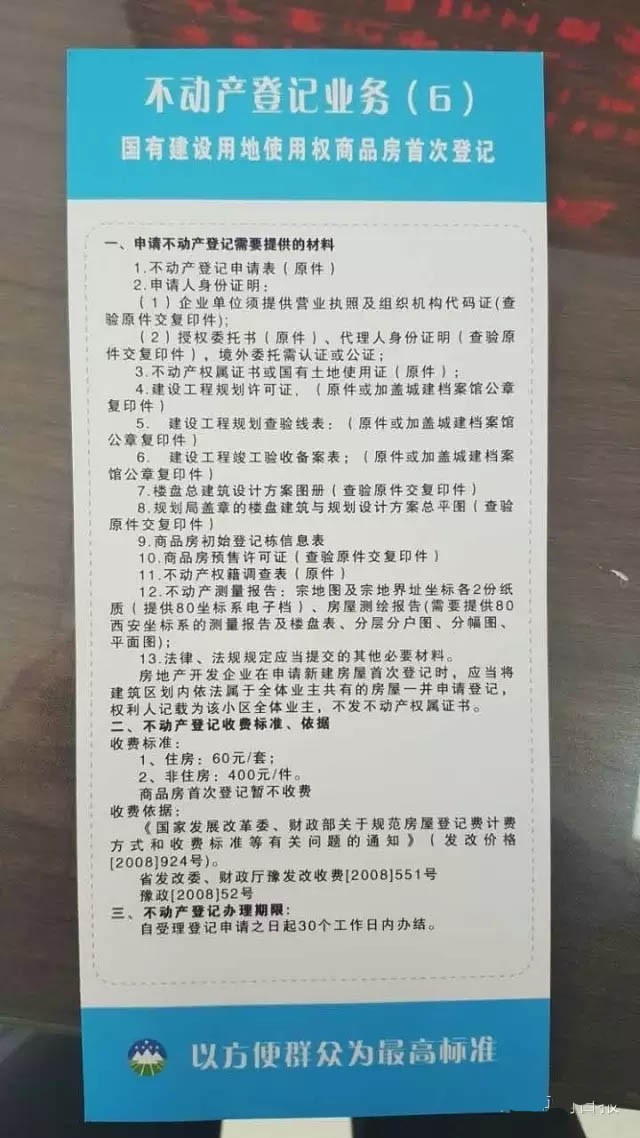 不动产登记业务（6）
国有建设用地使用权商品房首次登记
一、申请不动产登记需要提供的材料
1.不动产登记申请表（原件）
2.申请人身份证明：
（1）企业单位须提供营业执照及组织机构代码证(查
验原件交复印件);
（2）授权委托书（原件）、代理人身份证明（查验原
件交复印件），境外委托需认证或公证；
3.不动产权属证书或国有土地使用证（原件）；
4.建设工程规划许可证，（原件或加盖城建档案馆公章
复印件）
5. 建设工程规划查验线表：（原件或加盖城建档案馆
公章复印件）
6. 建设工程竣工验收备案表；（原件或加盖城建档案
馆公章复印件）
7.楼盘总建筑设计方案图册（查验原件交复印件）
8.规划局盖章的楼盘建筑与规划设计方案总平图（查验
原件交复印件）
9.商品房初始登记栋信息表
10.商品房预售许可证（查验原件交复印件）
11.不动产权籍调查表（原件）
12.不动产测量报告：宗地图及宗地界址坐标各2份纸
质（提供80坐标系电子档）、房屋测绘报告(需要提供80
西安坐标系的测量报告及楼盘表、分层分户图、分幅图、
平面图);
13.法律、法规规定应当提交的其他必要材料。
房地产开发企业在申请新建房屋首次登记时，应当将
建筑区划内依法属于全体业主共有的房屋一并申请登记，
权利人记载为该小区全体业主，不发不动产权属证书。
二、不动产登记收费标准、依据
收费标准：
1、住房：60元/套；
2、非住房：400元/件。
商品房首次登记暂不收费
收费依据：
《国家发展改革委、财政部关于规范房屋登记费计费
方式和收费标准等有关问题的通知》（发改价格
[2008]924号)。
省发改委、财政厅豫发改收费[2008]551号
豫政[2008]52号
三、不动产登记办理期限:
自受理登记申请之日起30个工作日内办结。
以方便群众为最高标准